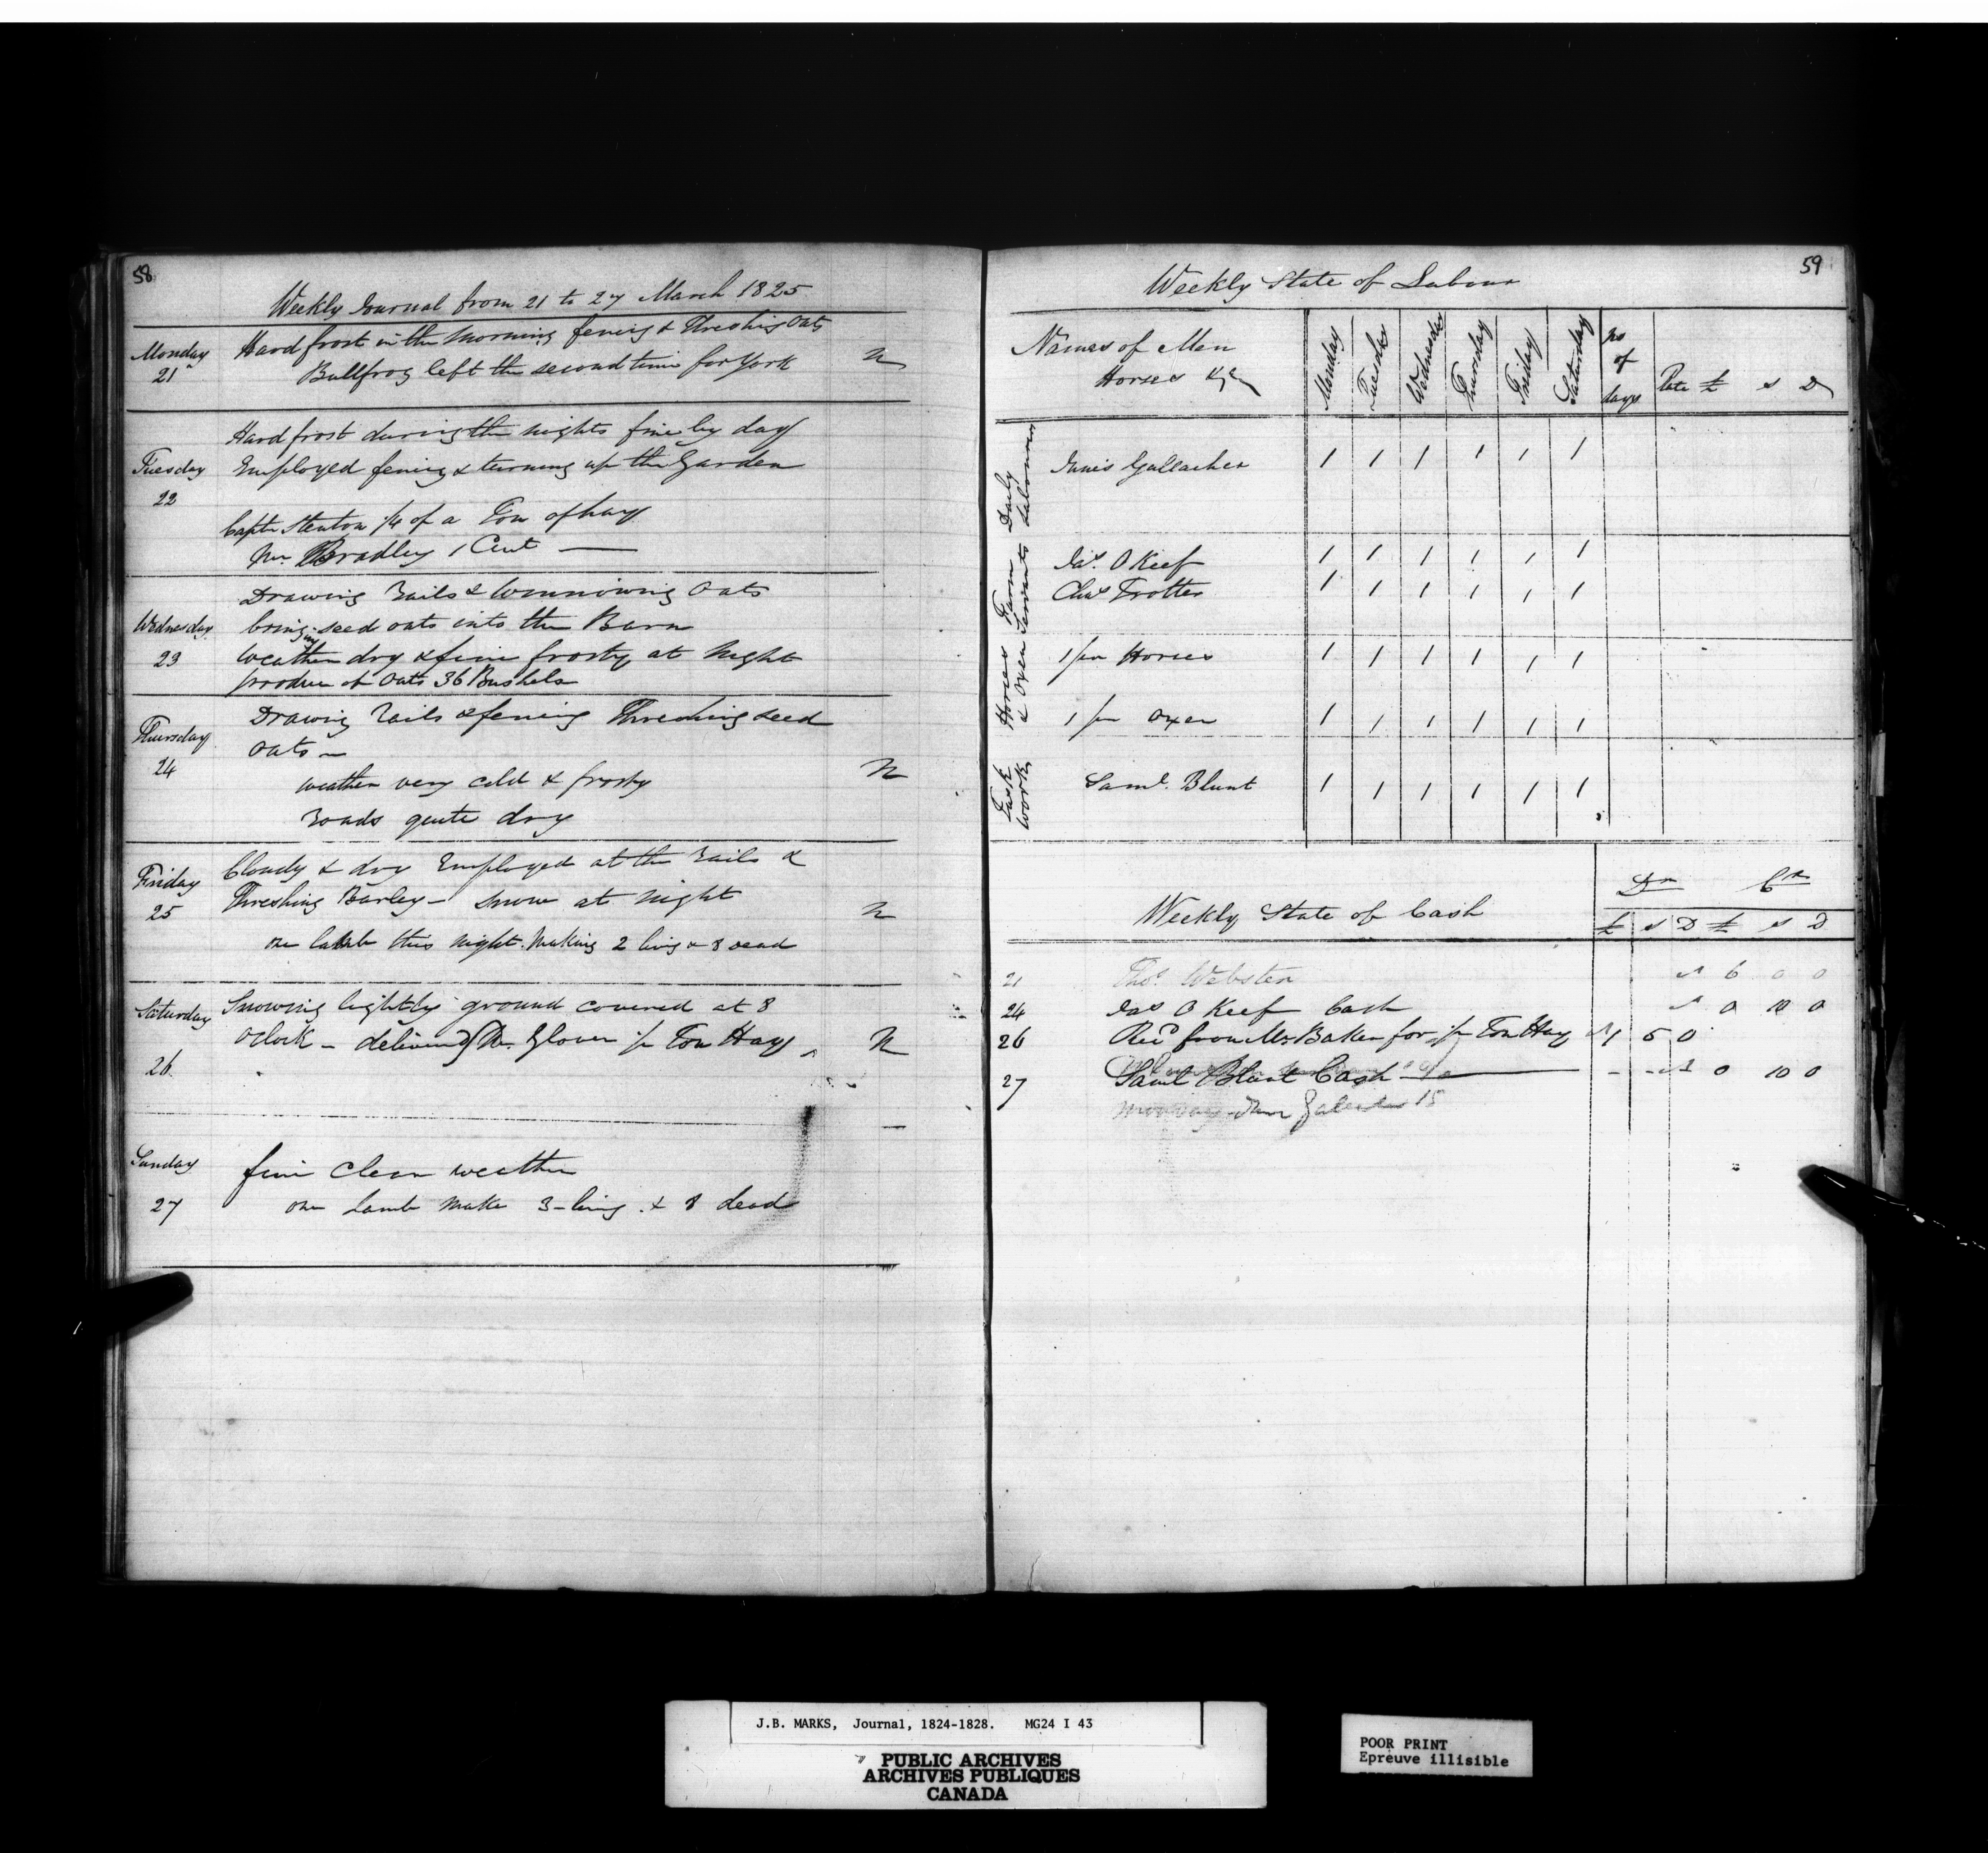 58
Weekly Journal from 21 to 27 March 1825
Monday 21
Hard frost in the morning fencing & Threshing Oats
Bullfrog left the second time for York
N
Tuesday 22
Hard frost during the nights fine by day
Employed fencing & turning up the Garden
Captn Stenton 1/4 of a Ton of hay
Mr. Bradley 1 Cwt
Wednesday 23
Drawing Rails & Winnowing Oats
bringing seed oats into the Barn
Weather dry & fine frosty at Night
produce of Oats 36 Bushels
Thursday 24
Drawing Rails & fencing Threshing seed
Oats
weather very cold & frosty
Roads quite dry
N
Friday 25
Cloudy & dry Employed at the Rails &
Threshing Barley - Snow at Night
one lamb this night. Making 2 living & 8 dead
N
Saturday 26
Snowing lightly ground covered at 8
oclock - delivered Mr. Glover 1/2 Ton Hay
N
Sunday 27
fine Clear weather
one Lamb make 3 living & 8 dead
59
Weekly State of Labour
Names of Men
Horses &c
Monday Tuesday Wednesday Thursday Friday Saturday No of days Rate £ s D
Daily Labourers
Innis Gallacher 1 1 1 1 1 1
Farm Servants
Jas. O Keef 1 1 1 1 1 1
Chas Trotter 1 1 1 1 1 1
Horses & Oxen
1 pr Horses 1 1 1 1 1 1
1 pr Oxen 1 1 1 1 1 1
Task Work
Saml. Blunt 1 1 1 1 1 1
Weekly State of Cash
Dr Cr
£ s D £ s D
21 Thos. Webster 6 0 0
24 Jas O Keef Cash 0 10 0
26 Recd from Mr Baker for 1/2 Ton Hay 1 5 0
27 Saml Blunt Cash 0 10 0
15
J.B. MARKS, Journal, 1824-1828. MG24 I 43
PUBLIC ARCHIVES
ARCHIVES PUBLIQUES
CANADA
POOR PRINT
Epreuve illisible